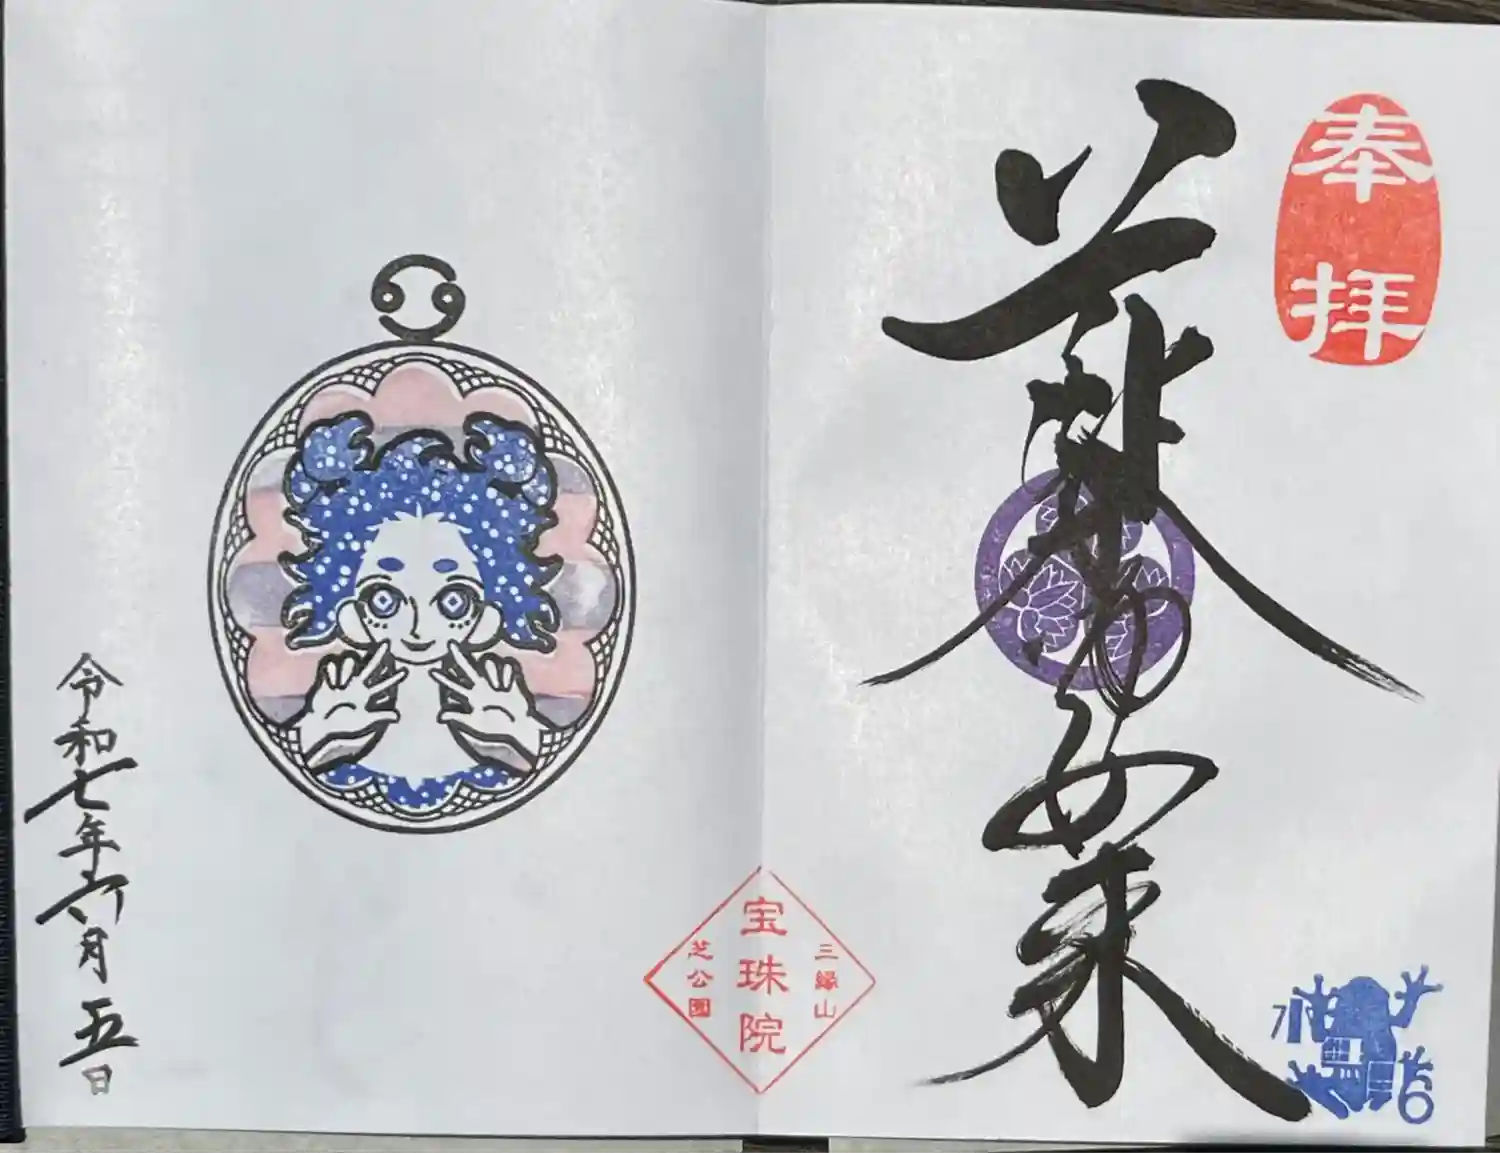 奉拝
薬師如来
三縁山
宝珠院
芝公園
7
6
令和七年六月五日